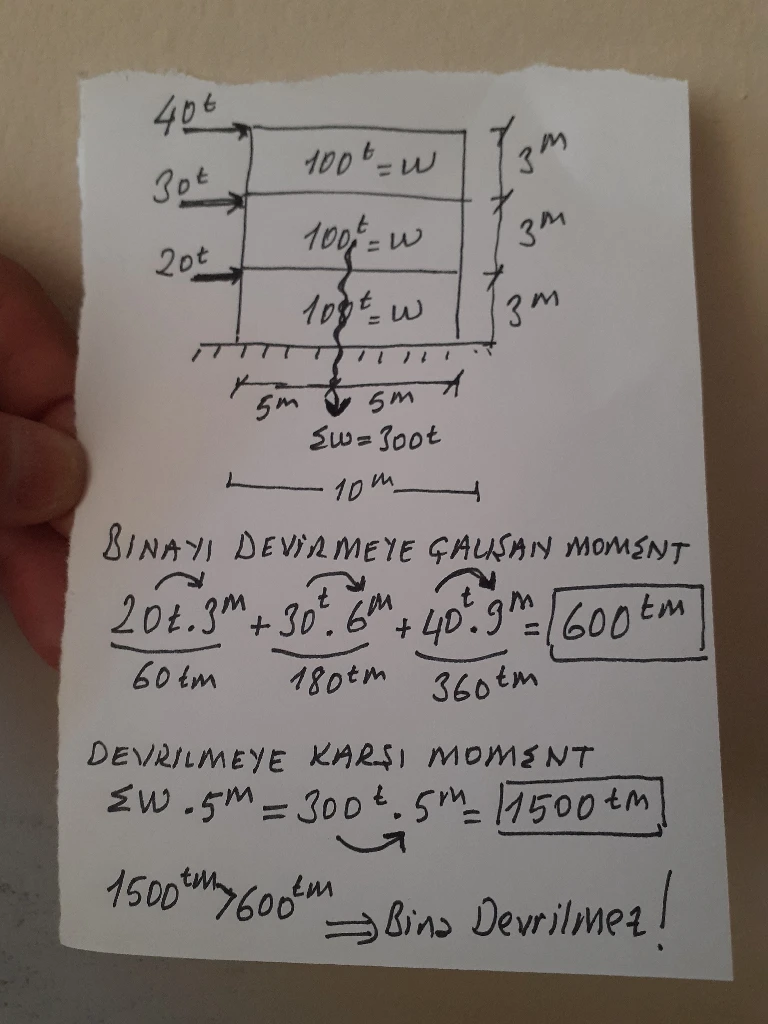 40t
100t = W
3m
30t
100t = W
3m
20t
100t = W
3m
5m 5m
ΣW = 300t
10m
BINAYI DEVİRMEYE ÇALIŞAN MOMENT
20t.3m + 30t.6m + 40t.9m = 600tm
60tm 180tm 360tm
DEVRILMEYE KARŞI MOMENT
ΣW.5m = 300t.5m = 1500tm
1500tm > 600tm ⇒ Bina Devrilmez!